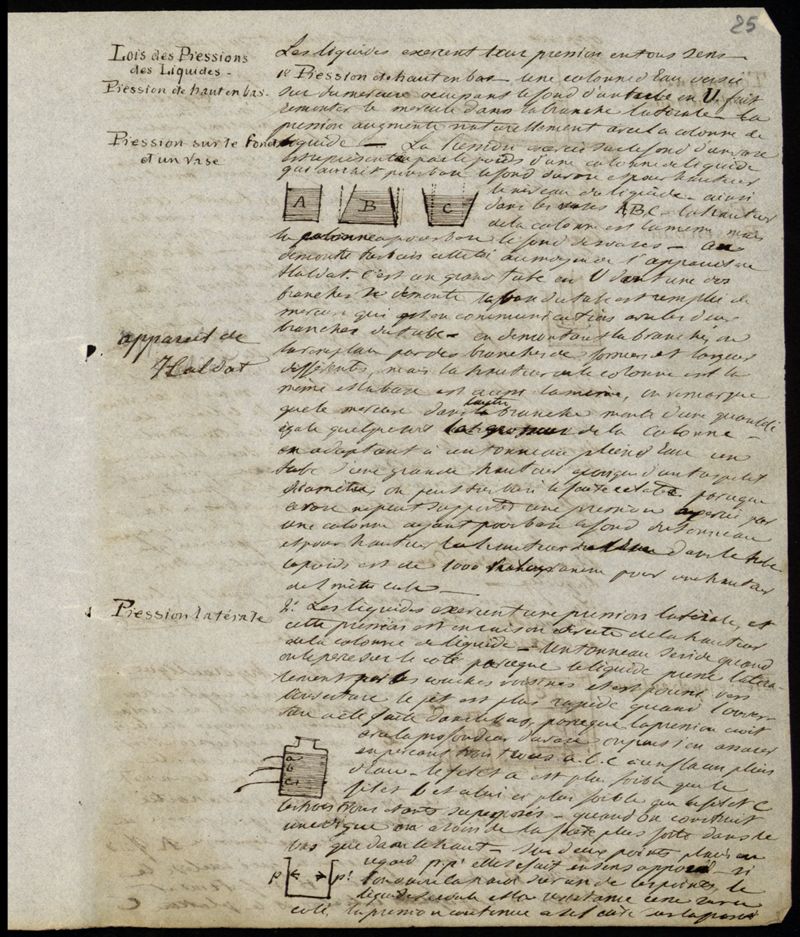 25
Lois des Pressions
des Liquides -
Pression de haut en bas.
Les liquides exercent leur pression en tous sens
1º Pression de haut en bas - une colonne d'eau versée
sur du mercure occupant le fond d'un tube en U fait
remonter le mercure dans la branche latérale - La
pression augmente naturellement avec la colonne de
Pression sur le fond
d'un vase
liquide - La Pression exercée sur le fond d'un vase
est représentée par le poids d'une colonne de liquide
qui aurait pour base le fond du vase et pour hauteur
le niveau du liquide - ainsi
A B C
dans les vases ABC - la hauteur
de la colonne est la même mais
la colonne a pour base le fond des vases - On
démontre cette loi au moyen de l'appareil de
Haldat. C'est un grand tube en U dont une des
branches se démonte la base du tube est remplie de
mercure qui est en communication avec les deux
appareil de
Haldat
branches du tube - en démontant la branche, on
la remplace par des branches de formes et largeurs
différentes, mais la hauteur de la colonne est la
même et la base est aussi la même, on remarque
que le mercure dans l'autre branche monte d'une quantité
égale quelque soit la grosseur de la colonne -
en adaptant à un tonneau plein d'eau un
tube d'une grande hauteur quoique d'un très petit
diamètre, on peut parceque
une colonne ayant pour base le fond du tonneau
et pour hauteur la hauteur dans le tube
le poids est de 1000 pour une hauteur
de 1 mètre cube -
Pression latérale
2º Les liquides exercent une pression latérale, et
cette pression est en raison directe de la hauteur
de la colonne de liquide - Un tonneau se vide quand
on le perce sur le coté parceque le liquide pressé latéra-
lement par les couches voisines est poussé vers
l'ouverture le jet est plus rapide quand l'ouver-
ture a été faite dans le bas, parceque la pression croit
avec la profondeur du vase -
en perçant trois trous a. b. c
a
b
c
d'eau - le filet a est plus faible que le
filet b et celui ci plus faible que le filet C
les trois trous étant superposés - quand on construit
une digue on a soin de la faire plus forte dans le
bas que dans le haut - Sur deux points placés en
p p'
regard p. p' elle se fait en sens opposé - si